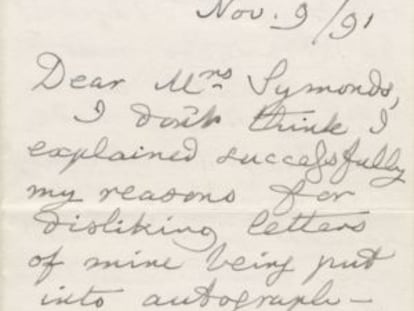 Nov. 9/91
Dear Mrs Symonds,
I don't think I
explained successfully
my reasons for
disliking letters
of mine being put
into autograph-